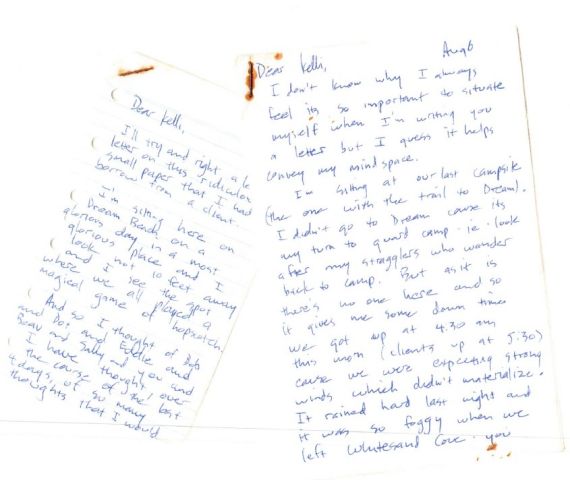 Dear Kelli,
I'll try and right a le
letter on this ridiculous
small paper that I had
borrow from a client
I'm sitting here on
Dream Beach on a
glorious day, in a most
glorious place and I
look not 10 feet away
and I see the spot
where we all played a
magical game of hopscotch.
And so I thought of Bob
and Dot and Eddie and
Beau and Sally and you and
I have thought over
the course of the last
4 days, of so many
thoughts that I would
Aug 6
Dear Kelli,
I don't know why I always
feel its so important to situate
myself when I'm writing you
a letter but I guess it helps
convey my mindspace.
I'm sitting at our last campsite
(the one with the trail to Dream).
I didn't go to Dream cause its
my turn to guard camp - ie - look
after any stragglers who wander
back to camp. But as it is
there's no one here and so
it gives me some down time
We got up at 4:30 am
this morn (clients up at 5:30)
cause we were expecting strong
winds which didn't materialize.
It rained hard last night and
it was so foggy when we
left Whitesand Cove. you